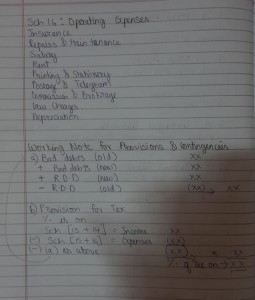 Sch 16 : Operating Expenses
Insurance
Repairs & Maintenance
Salary
Rent
Printing & Stationary
Postage & Telegram
Commission & Brokrage
Law Charges
Depreciation
Working Note for Provisions & Contingencies
a) Bad debts (old) xx
+ Bad debts (new) xx
+ R.D.D (new) xx
- R.D.D (old) (xx) xx
b) Provision for Tax
% is on
Sch [13 + 14] = Income xx
(-) Sch [15 + 16] = Expenses (xx)
(-) (a) as above (xx) xx
% of Tax on → xx